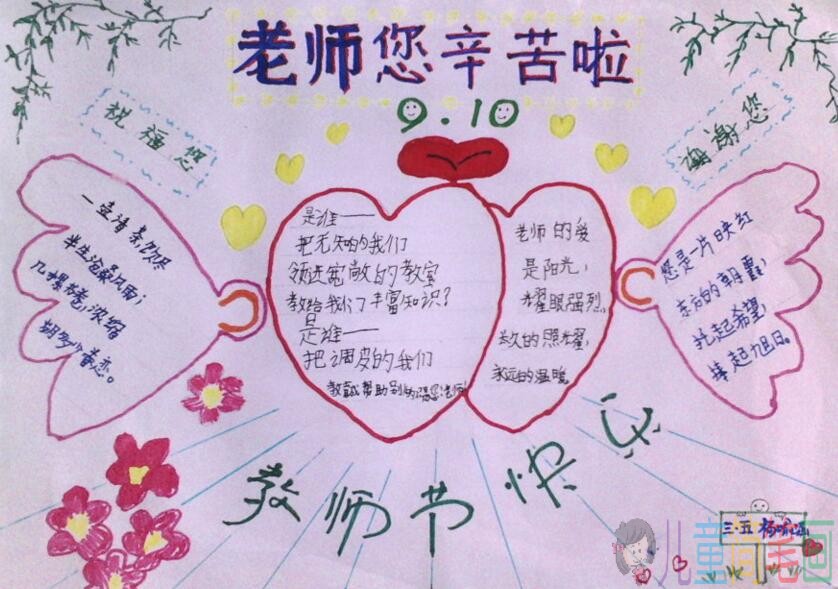 老师您辛苦啦
9.10
祝福您
谢谢您
一壶清茶饮尽
半生沧桑风雨,
几摞书卷,浓缩
是谁——
把无知的我们
领进宽敞的教室
教给我们丰富知识?
是谁——
把调皮的我们
老师的爱
是阳光,
耀眼强烈,
太久的照耀,
永远的温暖
您是一片映红
东方的朝霞,
托起希望,
捧起旭日。
教师节快乐
三.五
儿童简笔画